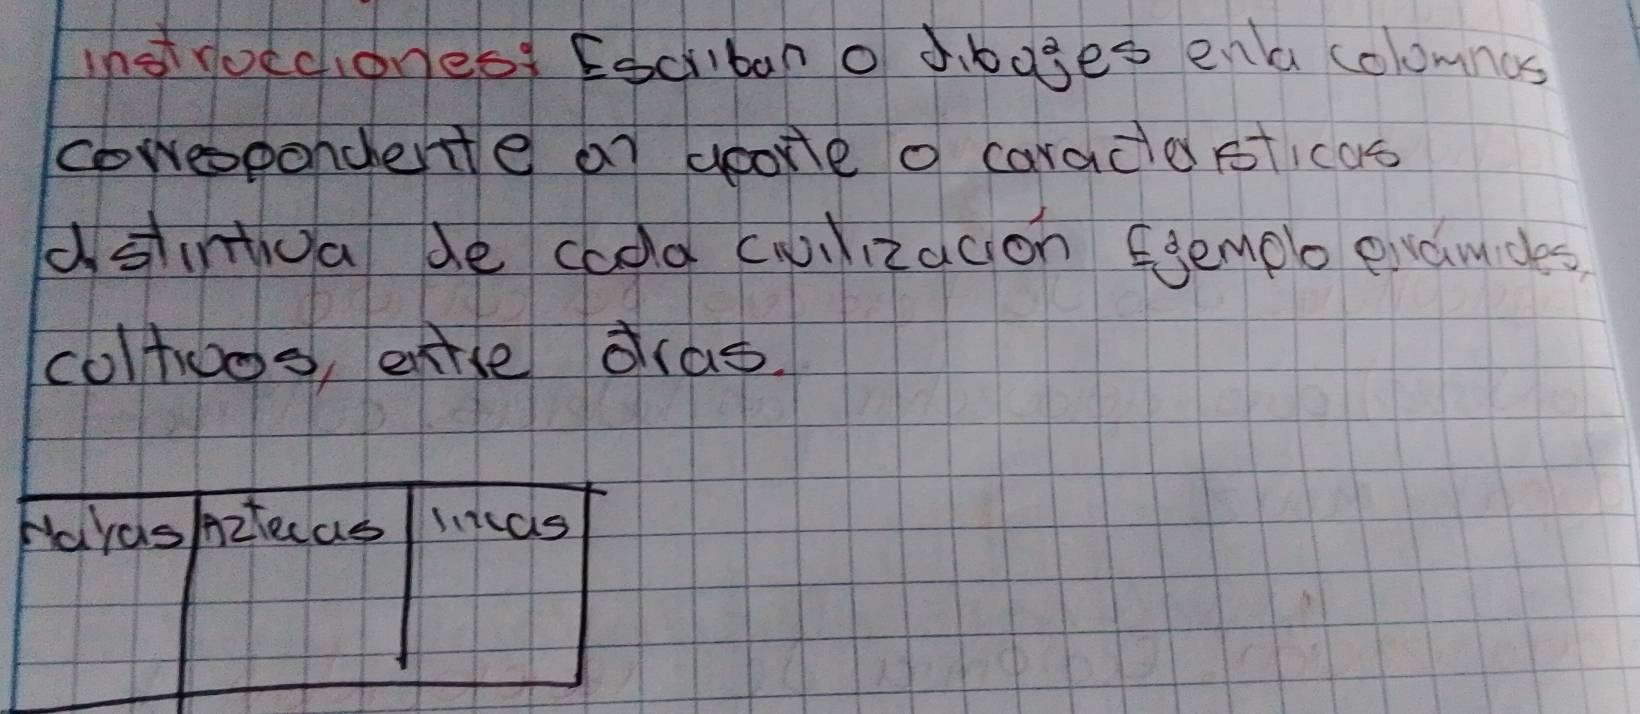 instrucciones: Escriban o dibujes enla columnas
correspondente an aporte o caracteristicas
distintiva de cada civilización Egemplo pirámides,
coltivos, entre otras.
Mayas Aztecas incas